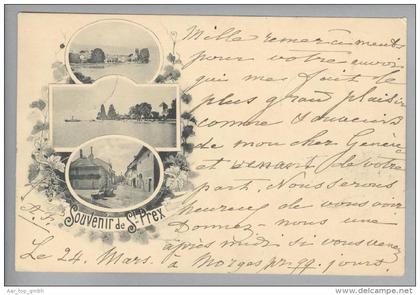 Mille remerciements
pour votre envoi
qui me fait le
plus grand plaisir
comme Souvenir
de mon cher Genève
et venant de votre
part. Nous serons
heureux de vous voir
Donnez-nous une
après midi si vous venez
à Morges pr. qq. jours.
Souvenir de St-Prex
Le 24 Mars.
© ayp_gmbh
delcampe.net